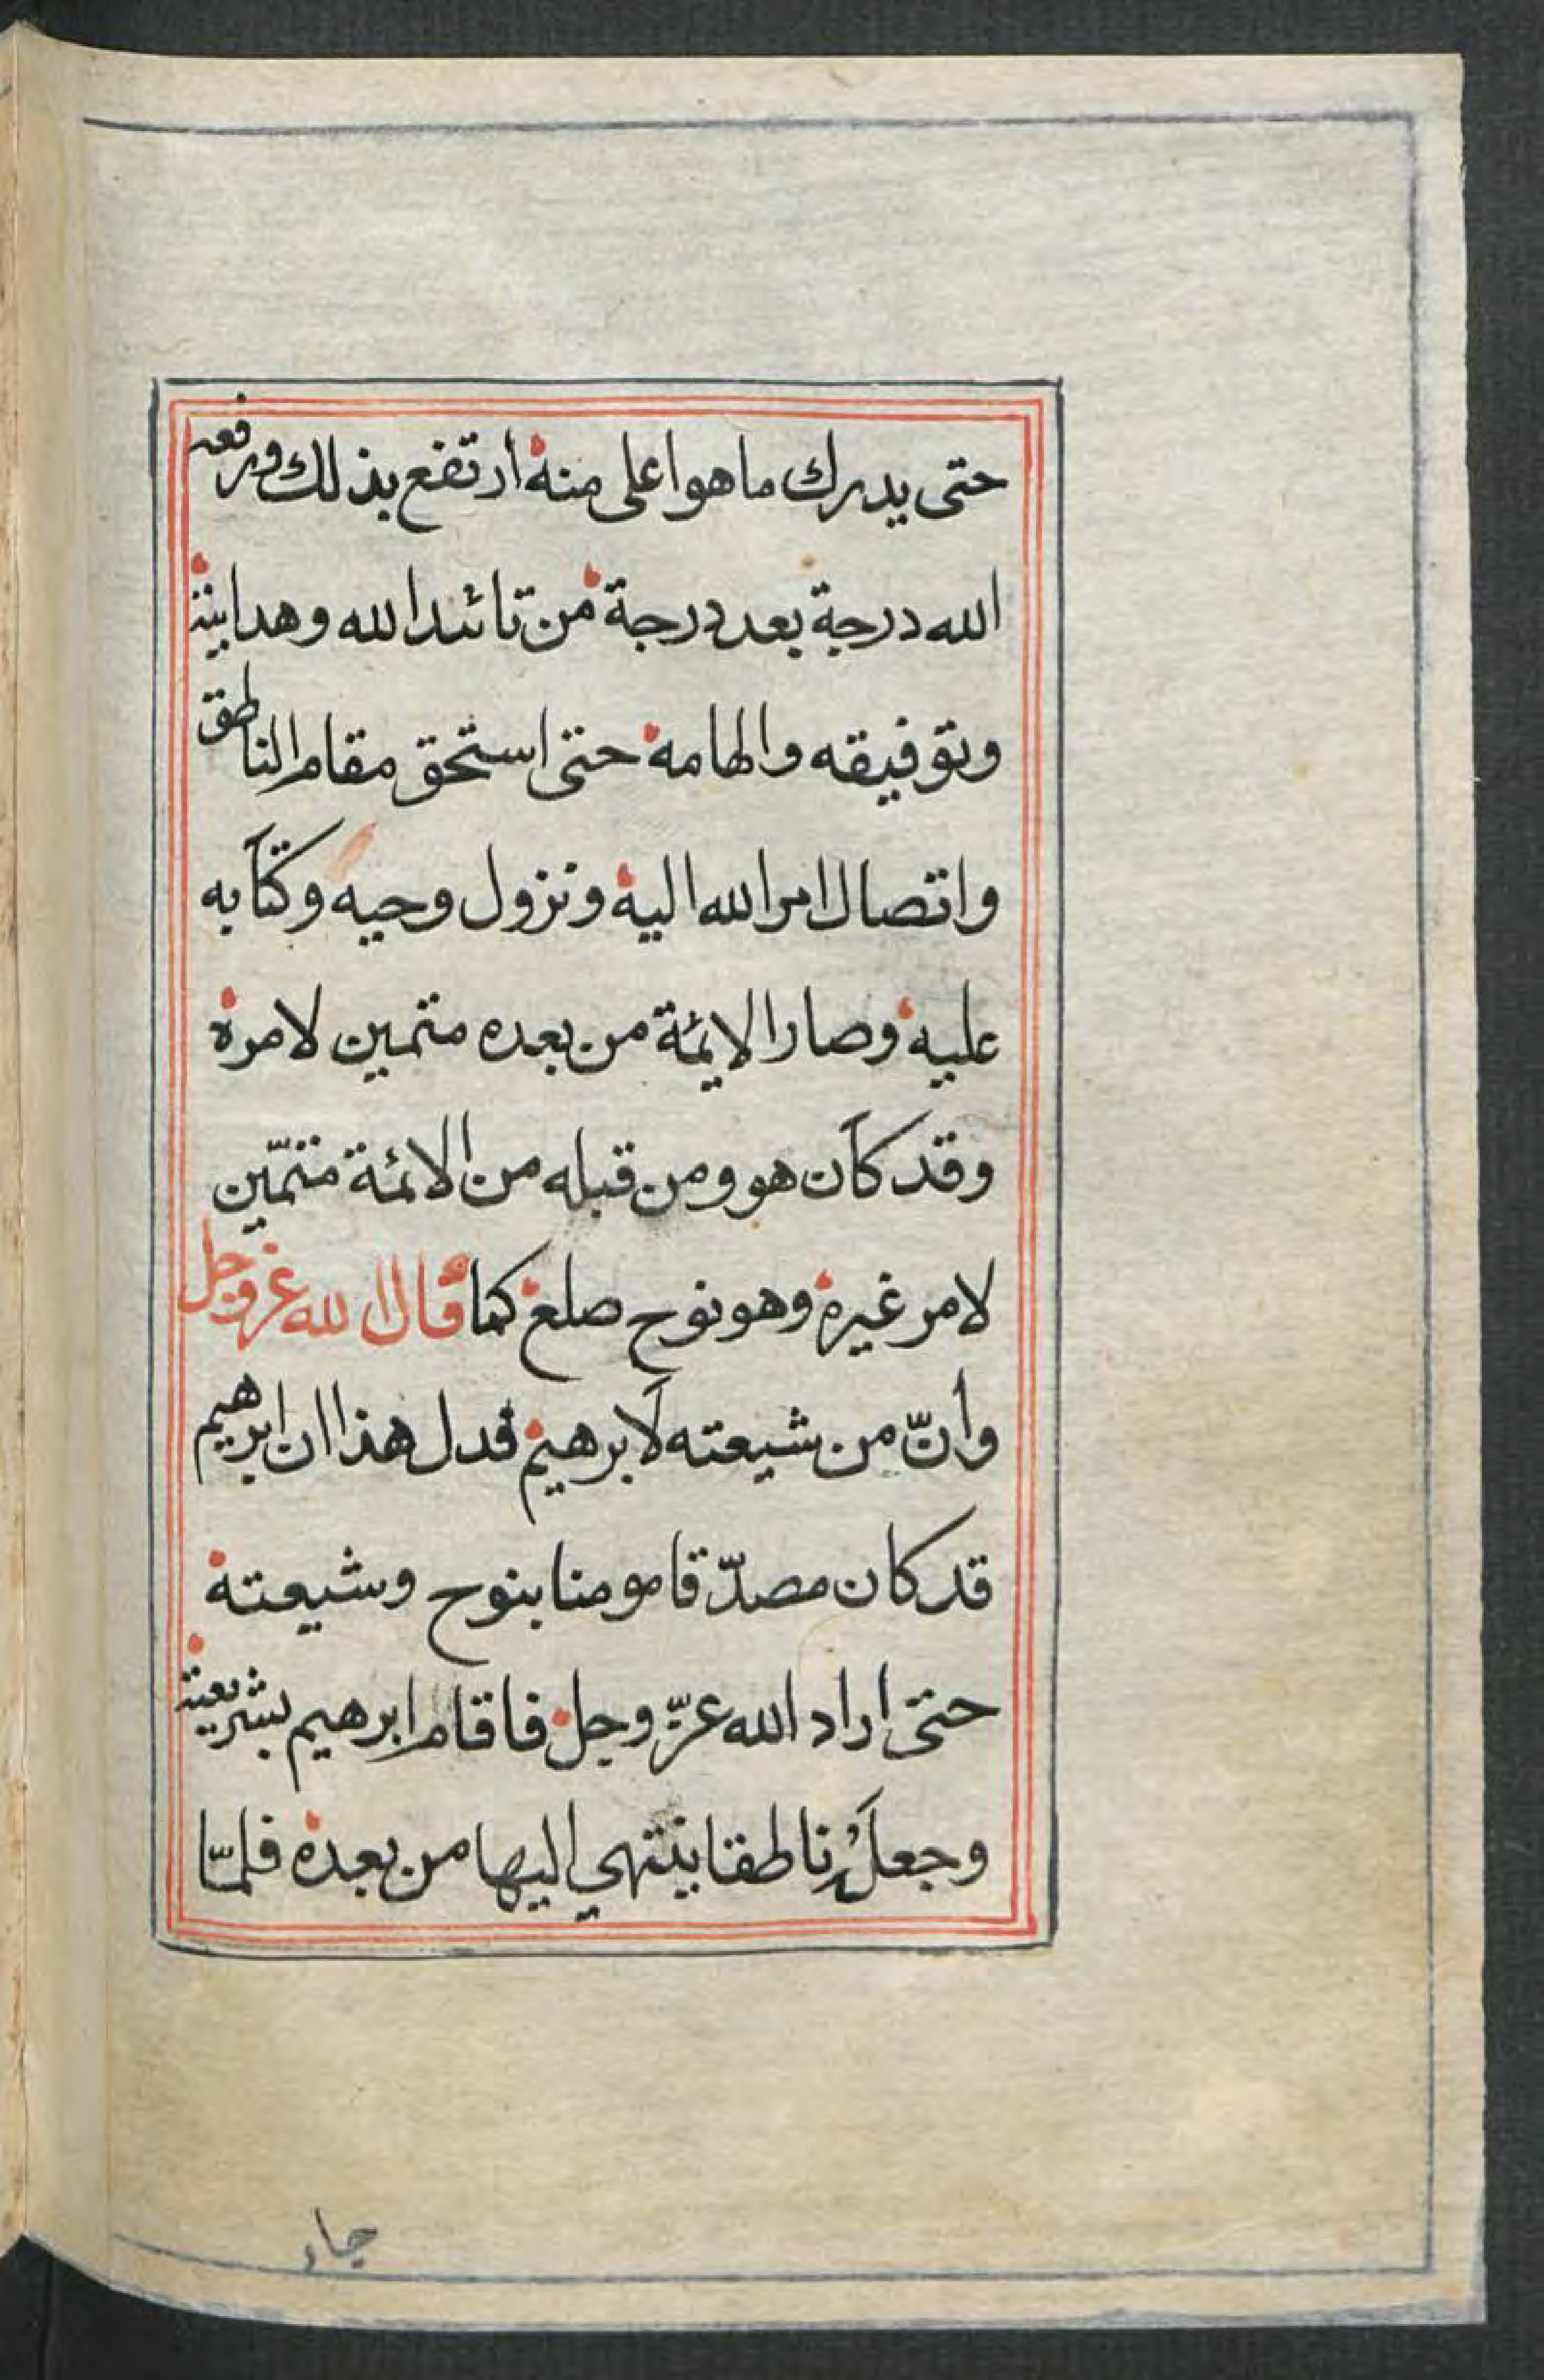 حتى يدرك ما هو اعلى منه ارتفع بذلك ورفعه
الله درجة بعد درجة من تائيد الله وهدايته
وتوفيقه والهامه حتى استحق مقام الناطق
واتصال امر الله اليه ونزول وحيه وكتابه
عليه وصار الايمّة من بعده متمين لامره
وقد كان هو ومن قبله من الائمة متمّين
لامر غيره وهو نوح صلع كما قال الله عز وجل
وأنّ من شيعته لابرهيم فدل هذا ان ابرهيم
قد كان مصدّقا مومنا بنوح وشيعته
حتى اراد الله عزّ وجل فاقام ابرهيم بشريعته
وجعلَهُ ناطقا ينتهي اليها من بعده فلمّا
جاء